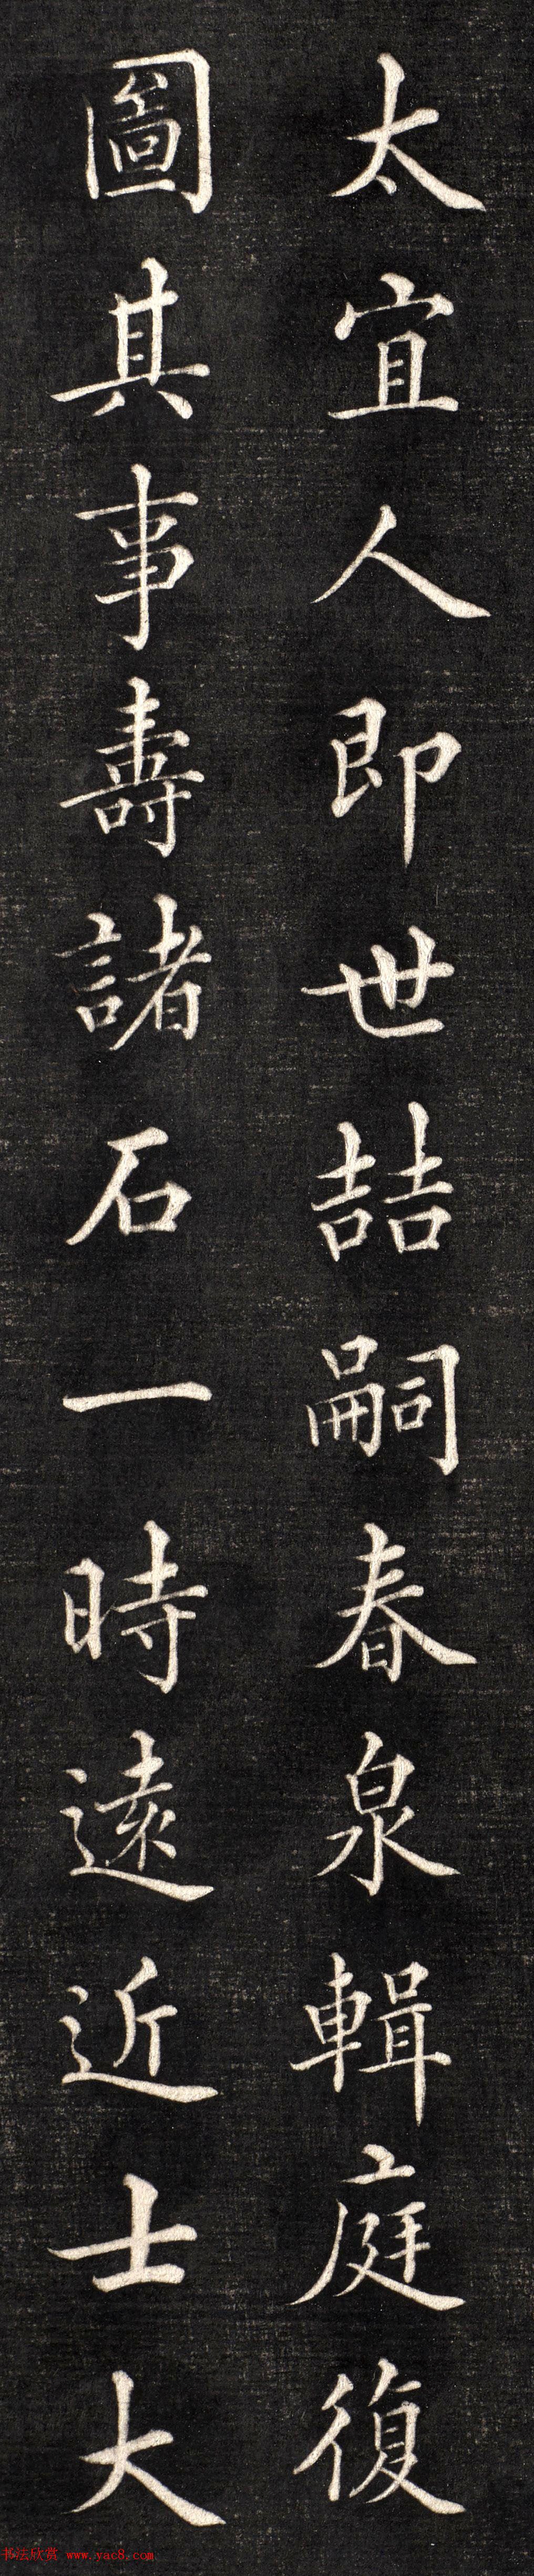 太宜人即世喆嗣春泉輯庭復
圖其事壽諸石一時遠近士大
书法欣赏 www.yac8.com